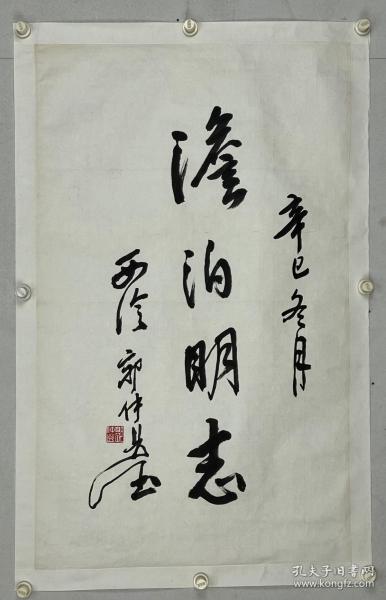 辛巳冬月
澹泊明志
西泠郭仲
孔夫子旧书网
www.kongfz.com